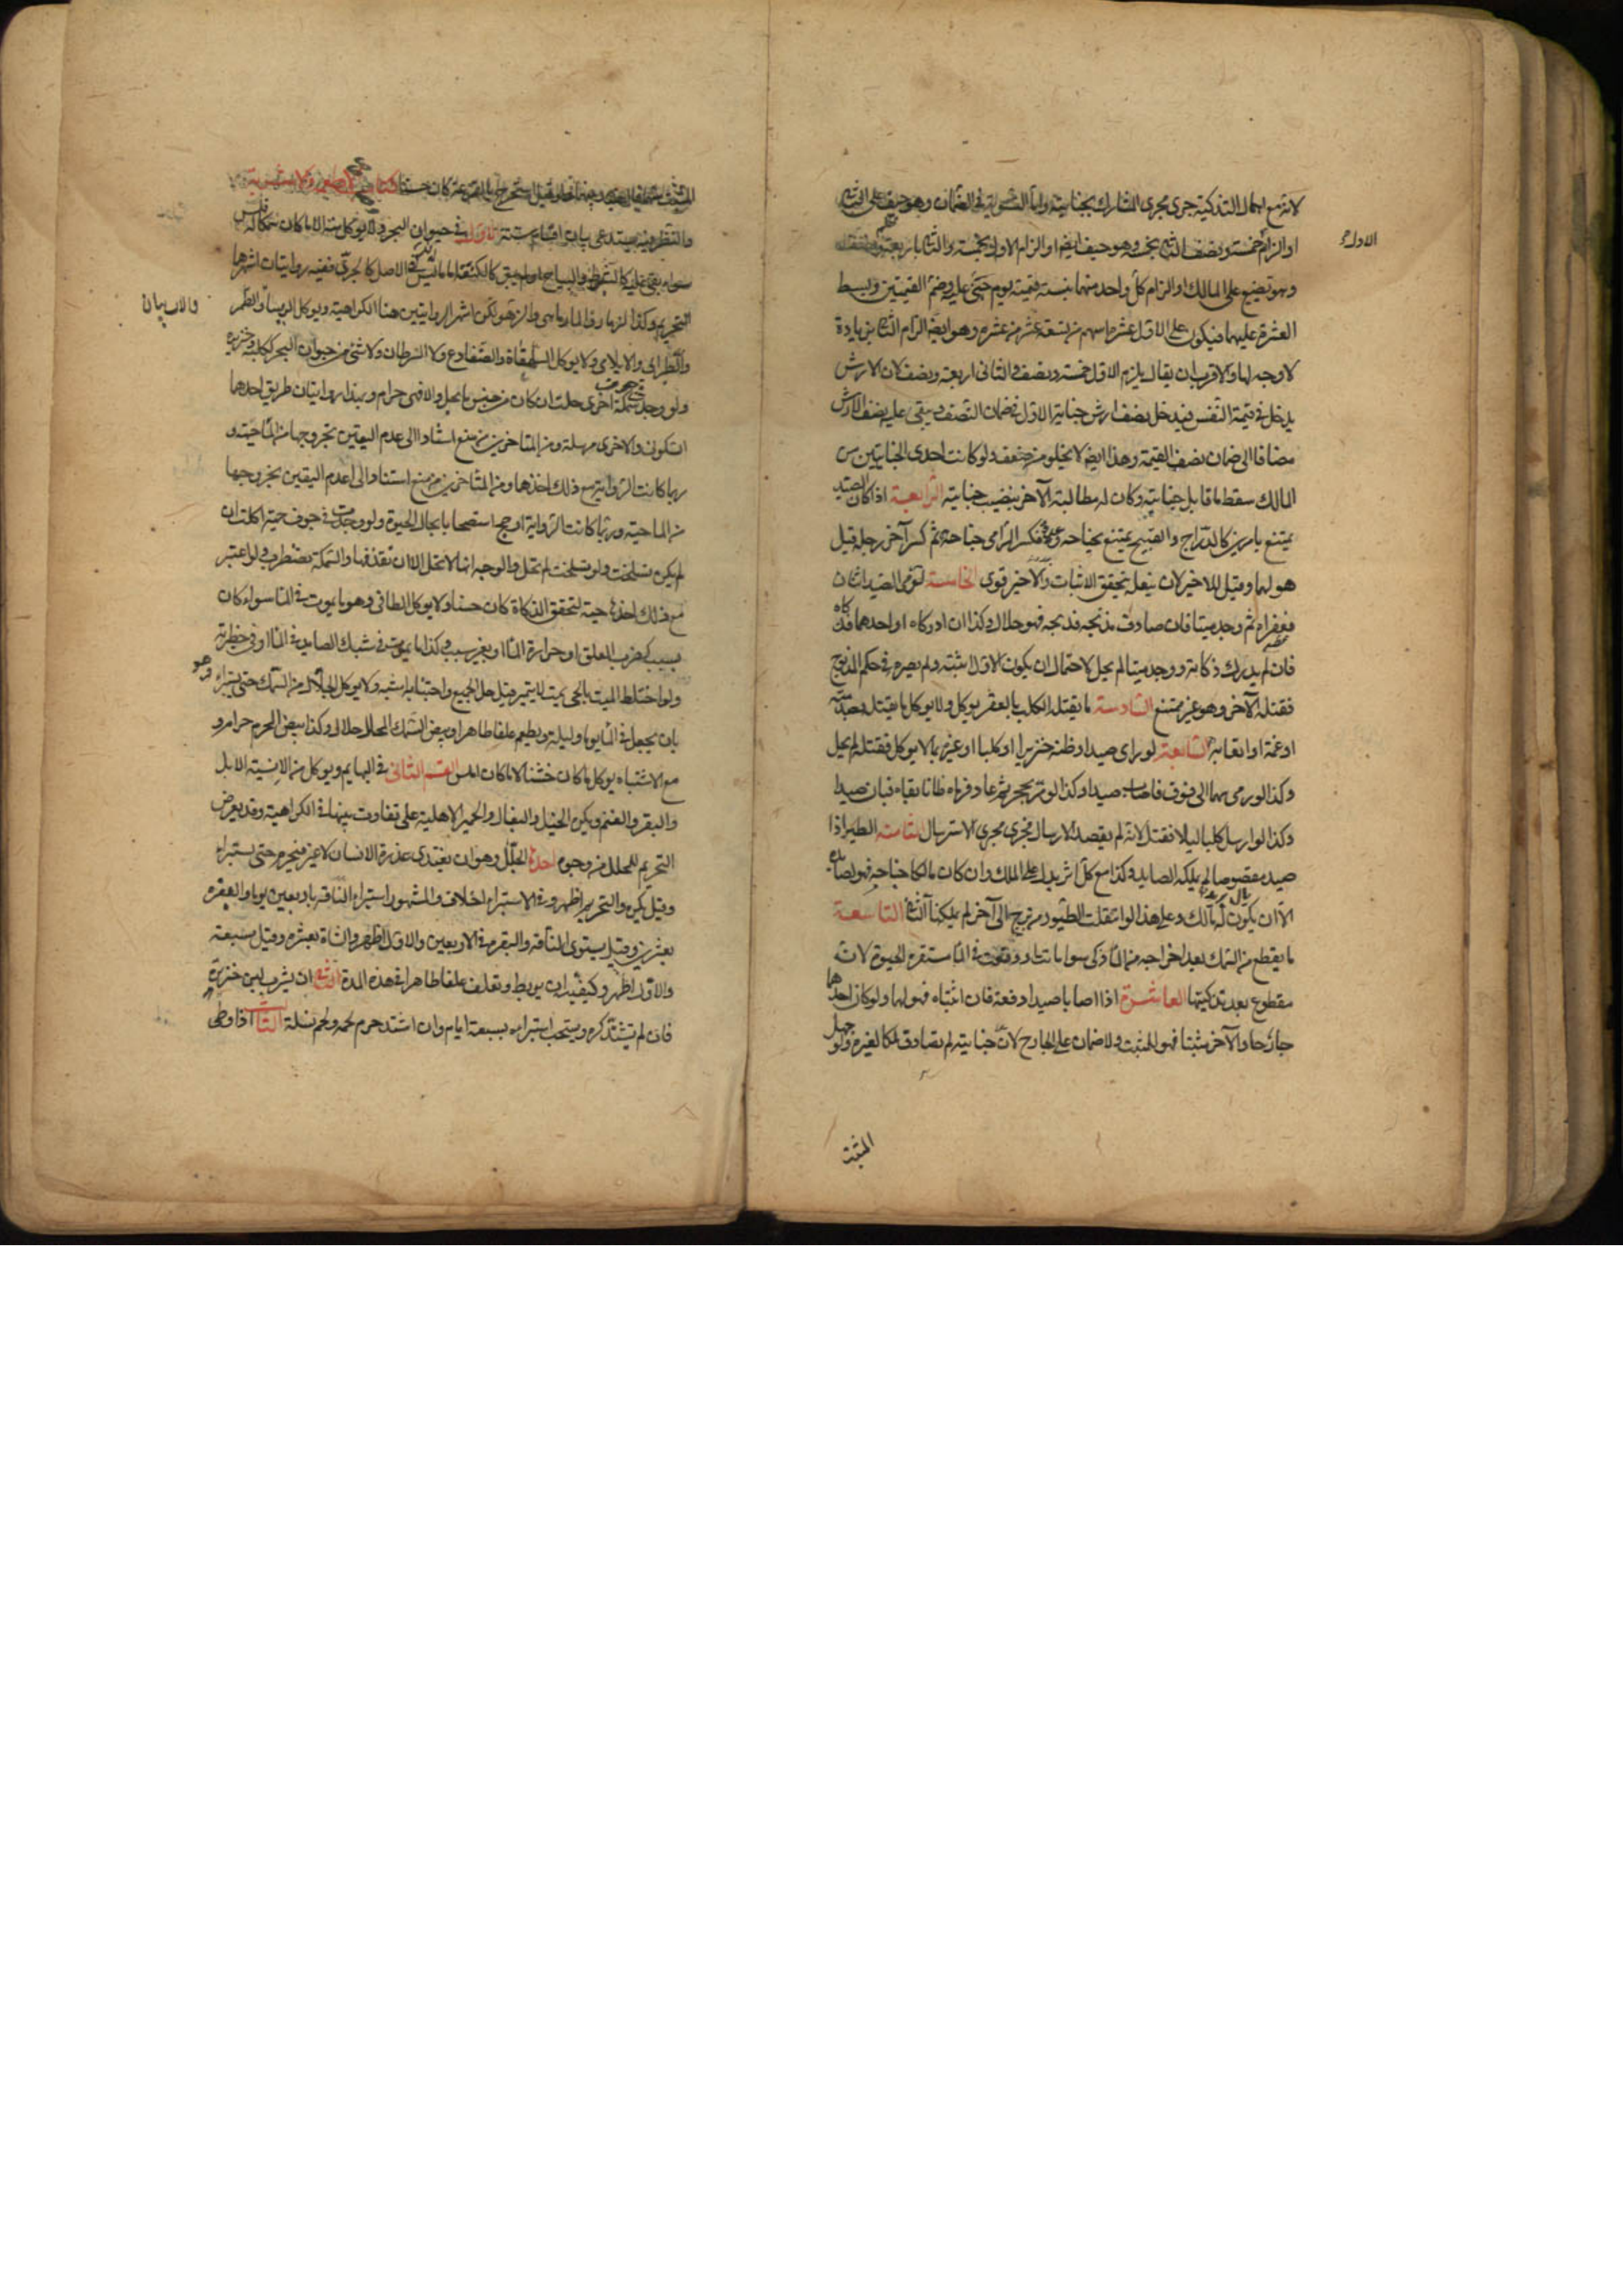 لانه مع اهمال التذكية جرى مجرى المشارك بجنايته واما التسوية في الضمان وهو حيف على الثاني
او الزام الاول بخمسة ونصف والثاني بخمسة وهو حيف ايضا او الزام الاول بخمسة والثاني باربعة ونصف
وهو تضييع على المالك او الزام كل واحد منهما بنسبة قيمته يوم جنى عليه وضم القيمتين وبسط
العشرة عليهما فيكون على الاول عشرة اسهم من تسعة عشر من عشرة وهو ايضا الزام الثاني بزيادة
لا وجه لها والاقرب ان يقال يلزم الاول خمسة ونصف والثاني اربعة ونصف لان الارش
يدخل في قيمة النفس فيدخل نصف ارش جناية الاول في ضمان النصف ويبقى عليه نصف الارش
مضافا الى ضمان نصف القيمة وهذا ايضا لا يخلو من ضعف ولو كانت احدى الجنايتين من
المالك سقط ما قابل جنايته وكان له مطالبة الآخر بنصيب جنايته الرابعة اذا كان الصيد
يمتنع بامرين كالدراج والقبج يمتنع بجناحه وعدوه فكسر الرامي جناحه ثم كسر آخر رجله قيل
هو لهما وقيل للاخير لان بفعله تحقق الاثبات والاخير قوى الخامسة لو رمى الصيد اثنان
فعقراه ثم وجد ميتا فان صادف مذبحه فذبحه فهو حلال وكذا ان ادركاه او احدهما فذكاه
فان لم يدرك ذكاته ووجد ميتا لم يحل لاحتمال ان يكون الاول اثبته ولم يصره في حكم المذبوح
فقتله الآخر وهو غير ممتنع السادسة ما يقتله الكلب بالعقر يوكل ولا يوكل ما يقتله بصدمته
او غمه او اتعابه السابعة لو راى صيدا وظنه خنزيرا او كلبا او غيره مما لا يوكل فقتله لم يحل
وكذا لو رمى سهما الى فوق فاصاب صيدا وكذا لو مر بحجر ثم عاد فرماه ظانا بقاه فبان صيدا
وكذا لو ارسل كلبا ليلا فقتل لانه لم يقصد الارسال فجرى مجرى الاسترسال الثامنة الطير اذا
صيد مقصوصا لم يملكه الصايد وكذا مع كل اثر يدل على الملك وان كان مالكا جناحه فهو لصايده
الا ان يكون له مالك وعلى هذا لو انتقلت الطيور من برج الى آخر لم يملكها الثاني التاسعة
ما يقطع من السمك بعد اخراجه من الماء ذكي سواء ماتت او وقعت في الماء مستقرة الحيوة لانه
مقطوع بعد تذكيتها العاشرة اذا اصابا صيدا دفعة فان اثبتاه فهو لهما ولو كان احدهما
جارحا والآخر مثبتا فهو للمثبت ولا ضمان على الجارح لان جنايته لم تصادف ملكا لغيره ولو جهل
الاول
المثبت
المثبت منهما فالصيد بينهما ولو قيل يستخرج بالقرعة كان حسنا كتاب الاطعمة والاشربة
والنظر فيه يستدعي بيان اقسام ستة الاول في حيوان البحر ولا يوكل منه الا ما كان سمكا له فلس
سواء بقي عليه كالشبوط والبياح او لم يبق كالكنعت اما ما ليس له في الاصل كالجري ففيه روايتان اشهرهما
التحريم وكذا الزمار والمارماهي والزهو لكن اشهر الروايتين هنا الكراهية ويوكل الربيثا والطمر
والطبراني والابلامي ولا يوكل السلحفاة والضفادع ولا السرطان ولا شئ من حيوان البحر ككلبه وخنزيره
ولو وجد في جوف سمكة اخرى حلت ان كان من جنس ما يحل والا فهي حرام وبهذا روايتان طريق احدهما
السكوني والاخرى مرسلة ومن المتاخرين من منع استنادا الى عدم اليقين بخروجها من الماء حية و
ربما كانت الرواية مع ذلك اخذها ومن المتاخرين من منع استنادا الى عدم اليقين بخروجها
من الماء حية وربما كانت الرواية ارجح استصحابا بحال الحيوة ولو وجدت في جوف حية اكلت ان
لم يكن تسلخت ولو تسلخت لم تحل والوجه انها لا تحل الا ان تقذفها والسمكة تضطرب ولو اعتبر
مع ذلك اخذها حية لتحقق الذكاة كان حسنا ولا يوكل الطافي وهو ما يموت في الماء سواء كان
بسبب كضرب العلق او حرارة الماء او بغير سبب وكذا ما يموت في شبك الصايد في الماء او في حظيرته
ولو اختلط الميت بالحي بحيث لا يتميز قيل حل الجميع واجتنابه اشبه ولا يوكل الجلال من السمك حتى يستبراء وهو
بان يجعل في الماء يوما وليلة ويطعم علفا طاهرا وبيض السمك المحلل حلال وكذا بيض المحرم حرام و
مع الاشتباه يوكل ما كان خشنا لا ما كان املس القسم الثاني في البهايم ويوكل من الانسية الابل
والبقر والغنم ويكره الخيل والبغال والحمير الاهلية على تفاوت بينها في الكراهية وقد يعرض
التحريم للمحلل من وجوه احدها الجلل وهو ان يغتذي عذرة الانسان لا غير فيحرم حتى يستبراء
وقيل يكره والتحريم اظهر وفي الاستبراء خلاف والمشهور استبراء الناقة باربعين يوما والبقرة
بعشرين وقيل يستوي الناقة والبقرة في الاربعين والاول اظهر والشاة بعشرة وقيل بسبعة
والاول اظهر وكيفيته ان يربط وتعلف علفا طاهرا في هذه المدة الثاني ان يشرب لبن خنزيرة
فان لم يشتد كره ويستحب استبراءه بسبعة ايام وان اشتد حرم لحمه ولحم نسله الثالث اذا وطى
والاربيان